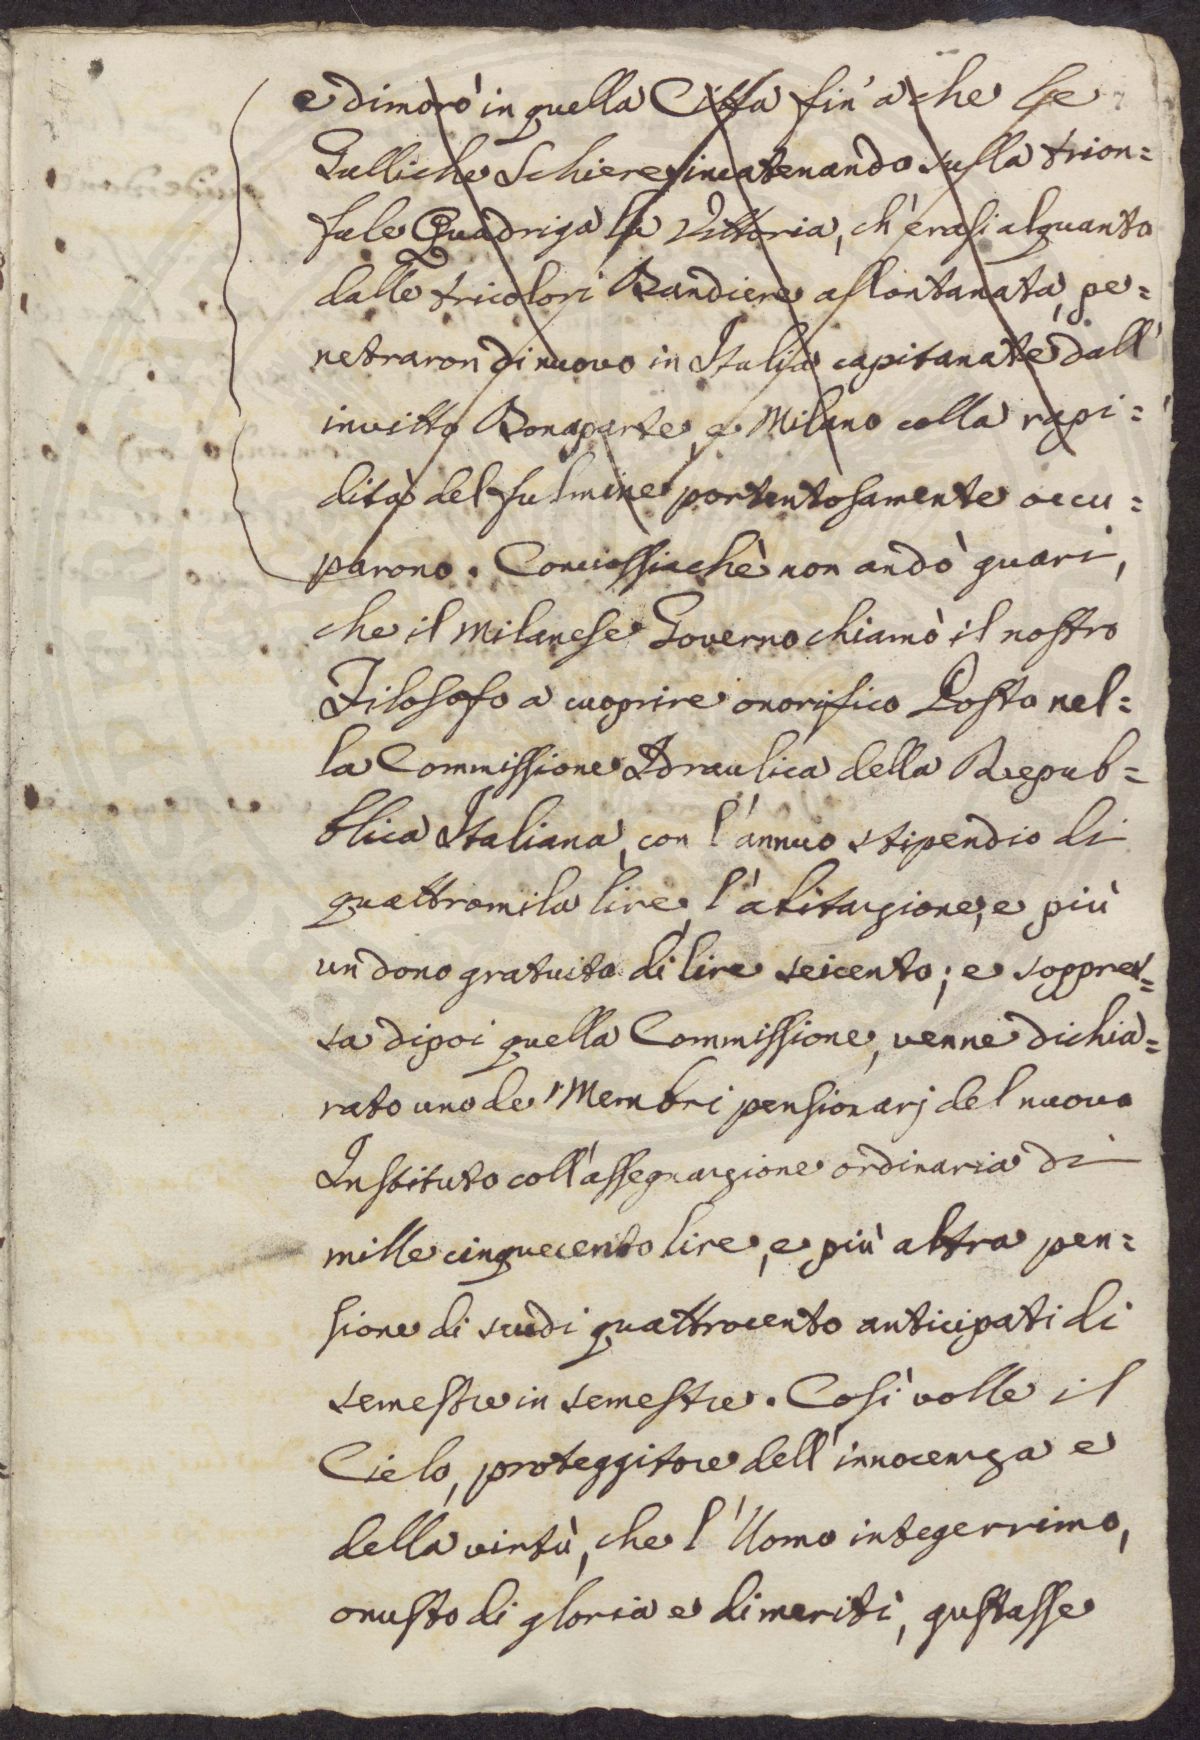 e dimorò in quella Città fin' a che le
Galliche Schiere, incatenando sulla trion=
fale Quadriga la Vittoria, ch' erasi alquanto
dalle tricolori Bandiere allontanata, pe=
netraron di nuovo in Italia capitanate dall'
invitto Bonaparte, e Milano colla rapi=
dità del fulmine portentosamente occu=
parono. Conciossiachè non andò guari,
che il Milanese Governo chiamò il nostro
Filosofo a cuoprire onorifico Posto nel=
la Commissione Idraulica della Repub=
blica Italiana, con l'annuo stipendio di
quattromila lire, l'abitazione, e più
un dono gratuito di lire seicento; e soppres=
sa dipoi quella Commissione, venne dichia=
rato uno de' Membri pensionarj del nuovo
Instituto coll'assegnazione ordinaria di
mille cinquecento lire, e più altra pen=
sione di scudi quattrocento anticipati di
semestre in semestre. Così volle il
Cielo, proteggitore dell'innocenza e
della virtù, che l'Uomo integerrimo,
onusto di gloria e di meriti, gustasse